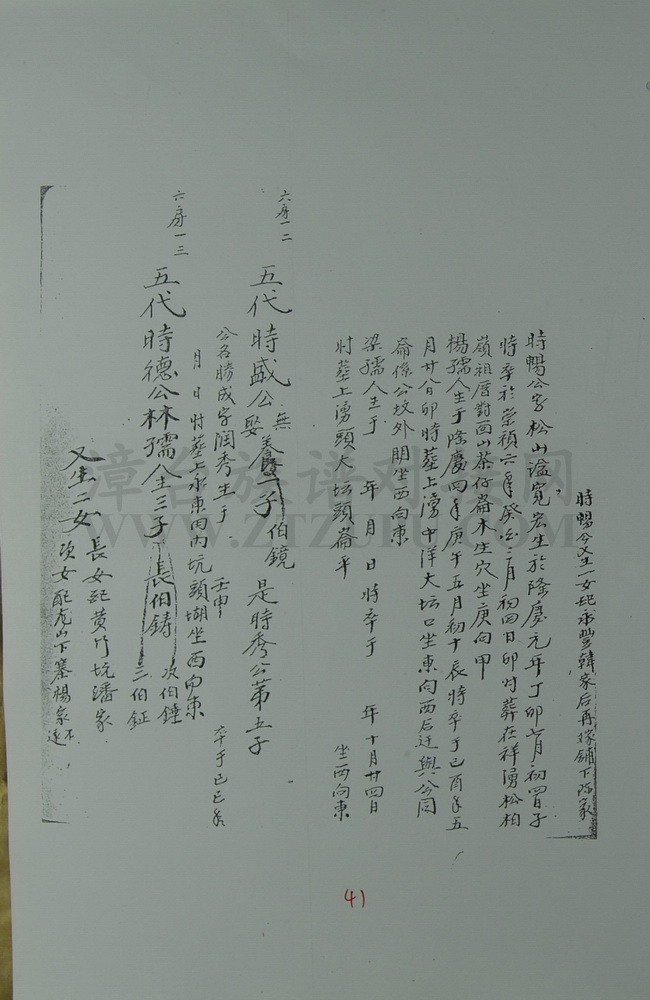 時暢公又生一女配永豐韓家后再嫁鋪下陈家
時暢公字松山谥寬宏生於隆慶元年丁卯七月初四日子
時卒於崇禎六年癸酉三月初四日卯时葬在祥湧松柏
嶺祖厝對面山茶仔崙木生穴坐庚向甲
楊孺人生于隆慶四年庚午五月初十辰時卒于己酉年五
月廿八日卯時葬上湧中洋大坛口坐東向西后迁與公同
崙係公坟外朋坐西向東
梁孺人生于 年 月 日 時卒于 年十月廿四日
时葬上湧頭大坛頭崙平 坐西向東
六房一二
五代時盛公娶無養一子伯鏡是時秀公第五子
公名勝成字润秀生于 壬申 卒于己巳年
月 日 时葬上永東内内坑頭坐西向東
六房一三
五代時德公林孺人生三子長伯鋳
次伯錘
三伯鉦
又生二女長女配黄竹坑潘家
次女配虎山下寨楊家
漳台族谱对接网
WWW.ZTZUPU.COM
41